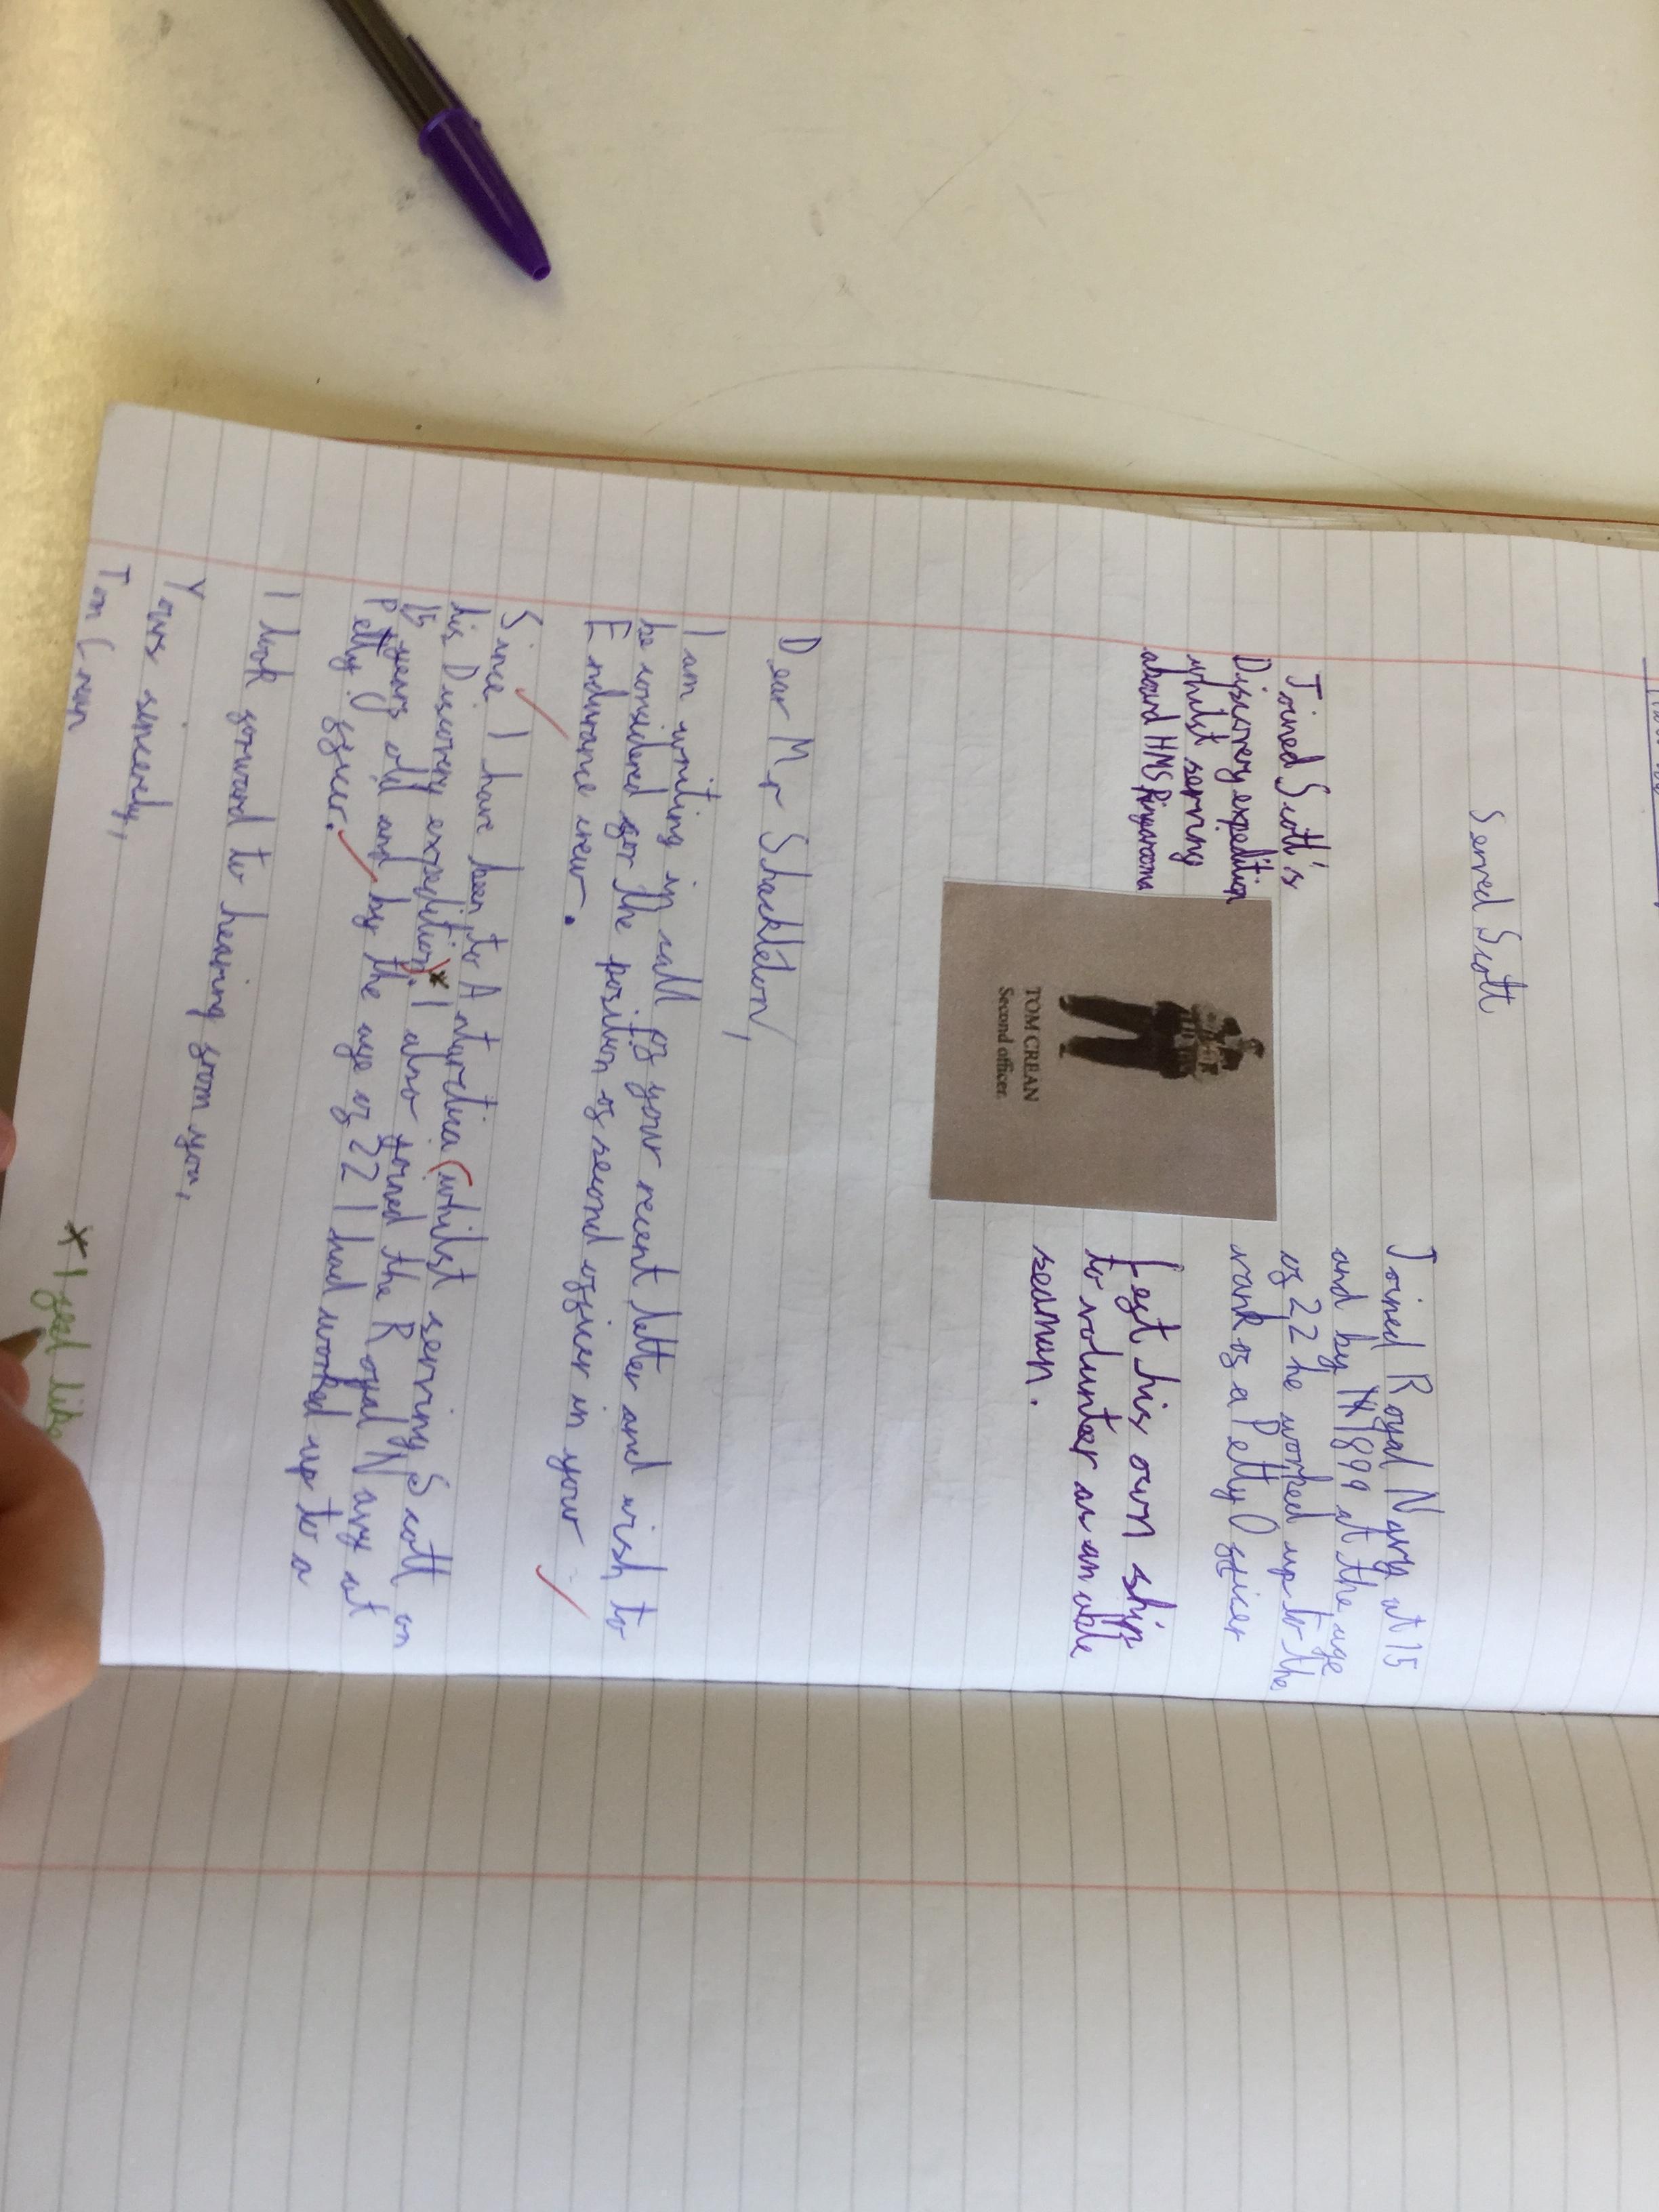 Served Scott
Joined Royal Navy at 15
and by 1899 at the age
of 22 he worked up to the
rank of a Petty Officer
Joined Scott's
Discovery expedition
whilst serving
aboard HMS Ringarooma
TOM CREAN
Second officer.
Left his own ship
to volunteer as an able
seaman.
Dear Mr Shackleton,
I am writing in call of your recent letter and wish to
be considered for the position of second officer in your
Endurance crew.
Since I have been to Antarctica (whilst serving Scott on
his Discovery expedition).* I also joined the Royal Navy at
15 years old and by the age of 22 I had worked up to a
Petty Officer.
I look forward to hearing from you,
Yours sincerely,
Tom Crean
* I feel like